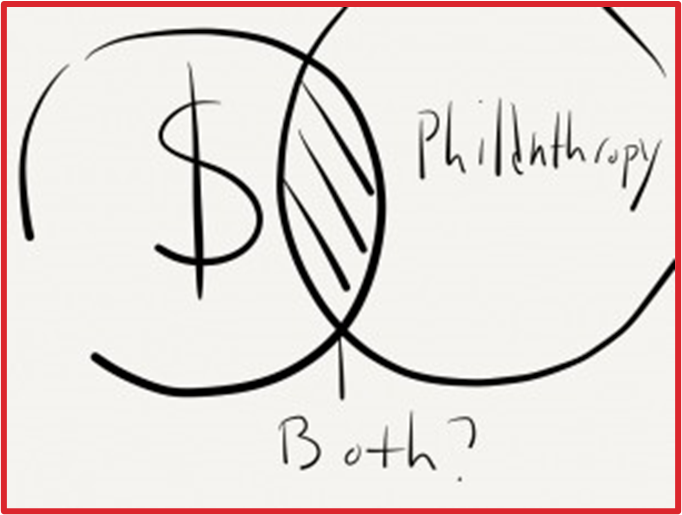 $
Philanthropy
Both?